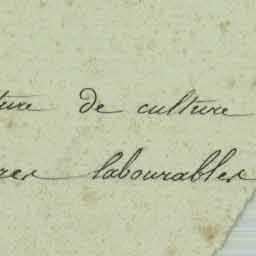 ture de culture
res labourables